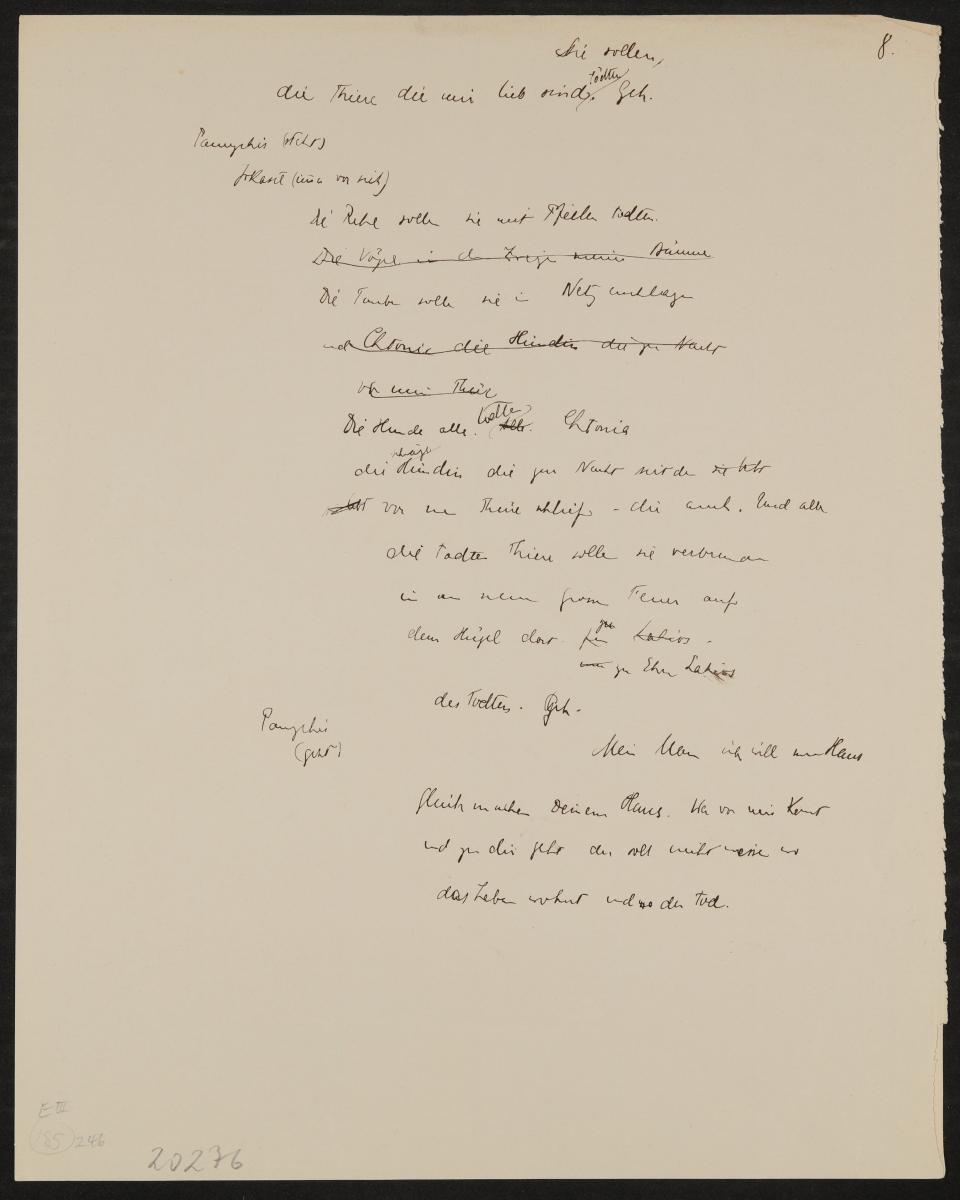 8.
Sie sollen,
die Thiere die mir lieb sind tödten. Geh.
Pannychis (steht)
Jokaste (immer vor sich)
Die Rehe sollen sie mit Pfeilen tödten.
Die Vögel in den Zweigen meiner Bäume
Die Tauben sollen sie in Netz einschlagen
und Chtonia die Hündin die zur Nacht
vor meiner Thür
Die Hunde alle. tödten Alle. Chtonia
die Hündin die zur Nacht mir den
vor der Thüre schlief – die auch. Und alle
die todten Thiere sollen sie verbrennen
in einem grossen Feuer auf
dem Hügel dort für zur Laïos.
zu Ehren Laïos
des Todten. Geh.
Pannychis
(geht)
Mein Mann ich will mein Haus
gleich machen Deinem Haus. Wer von mir kommt
und zu dir geht der soll nicht wissen wo
das Leben wohnt und wo der Tod.
E III
185 246
20276